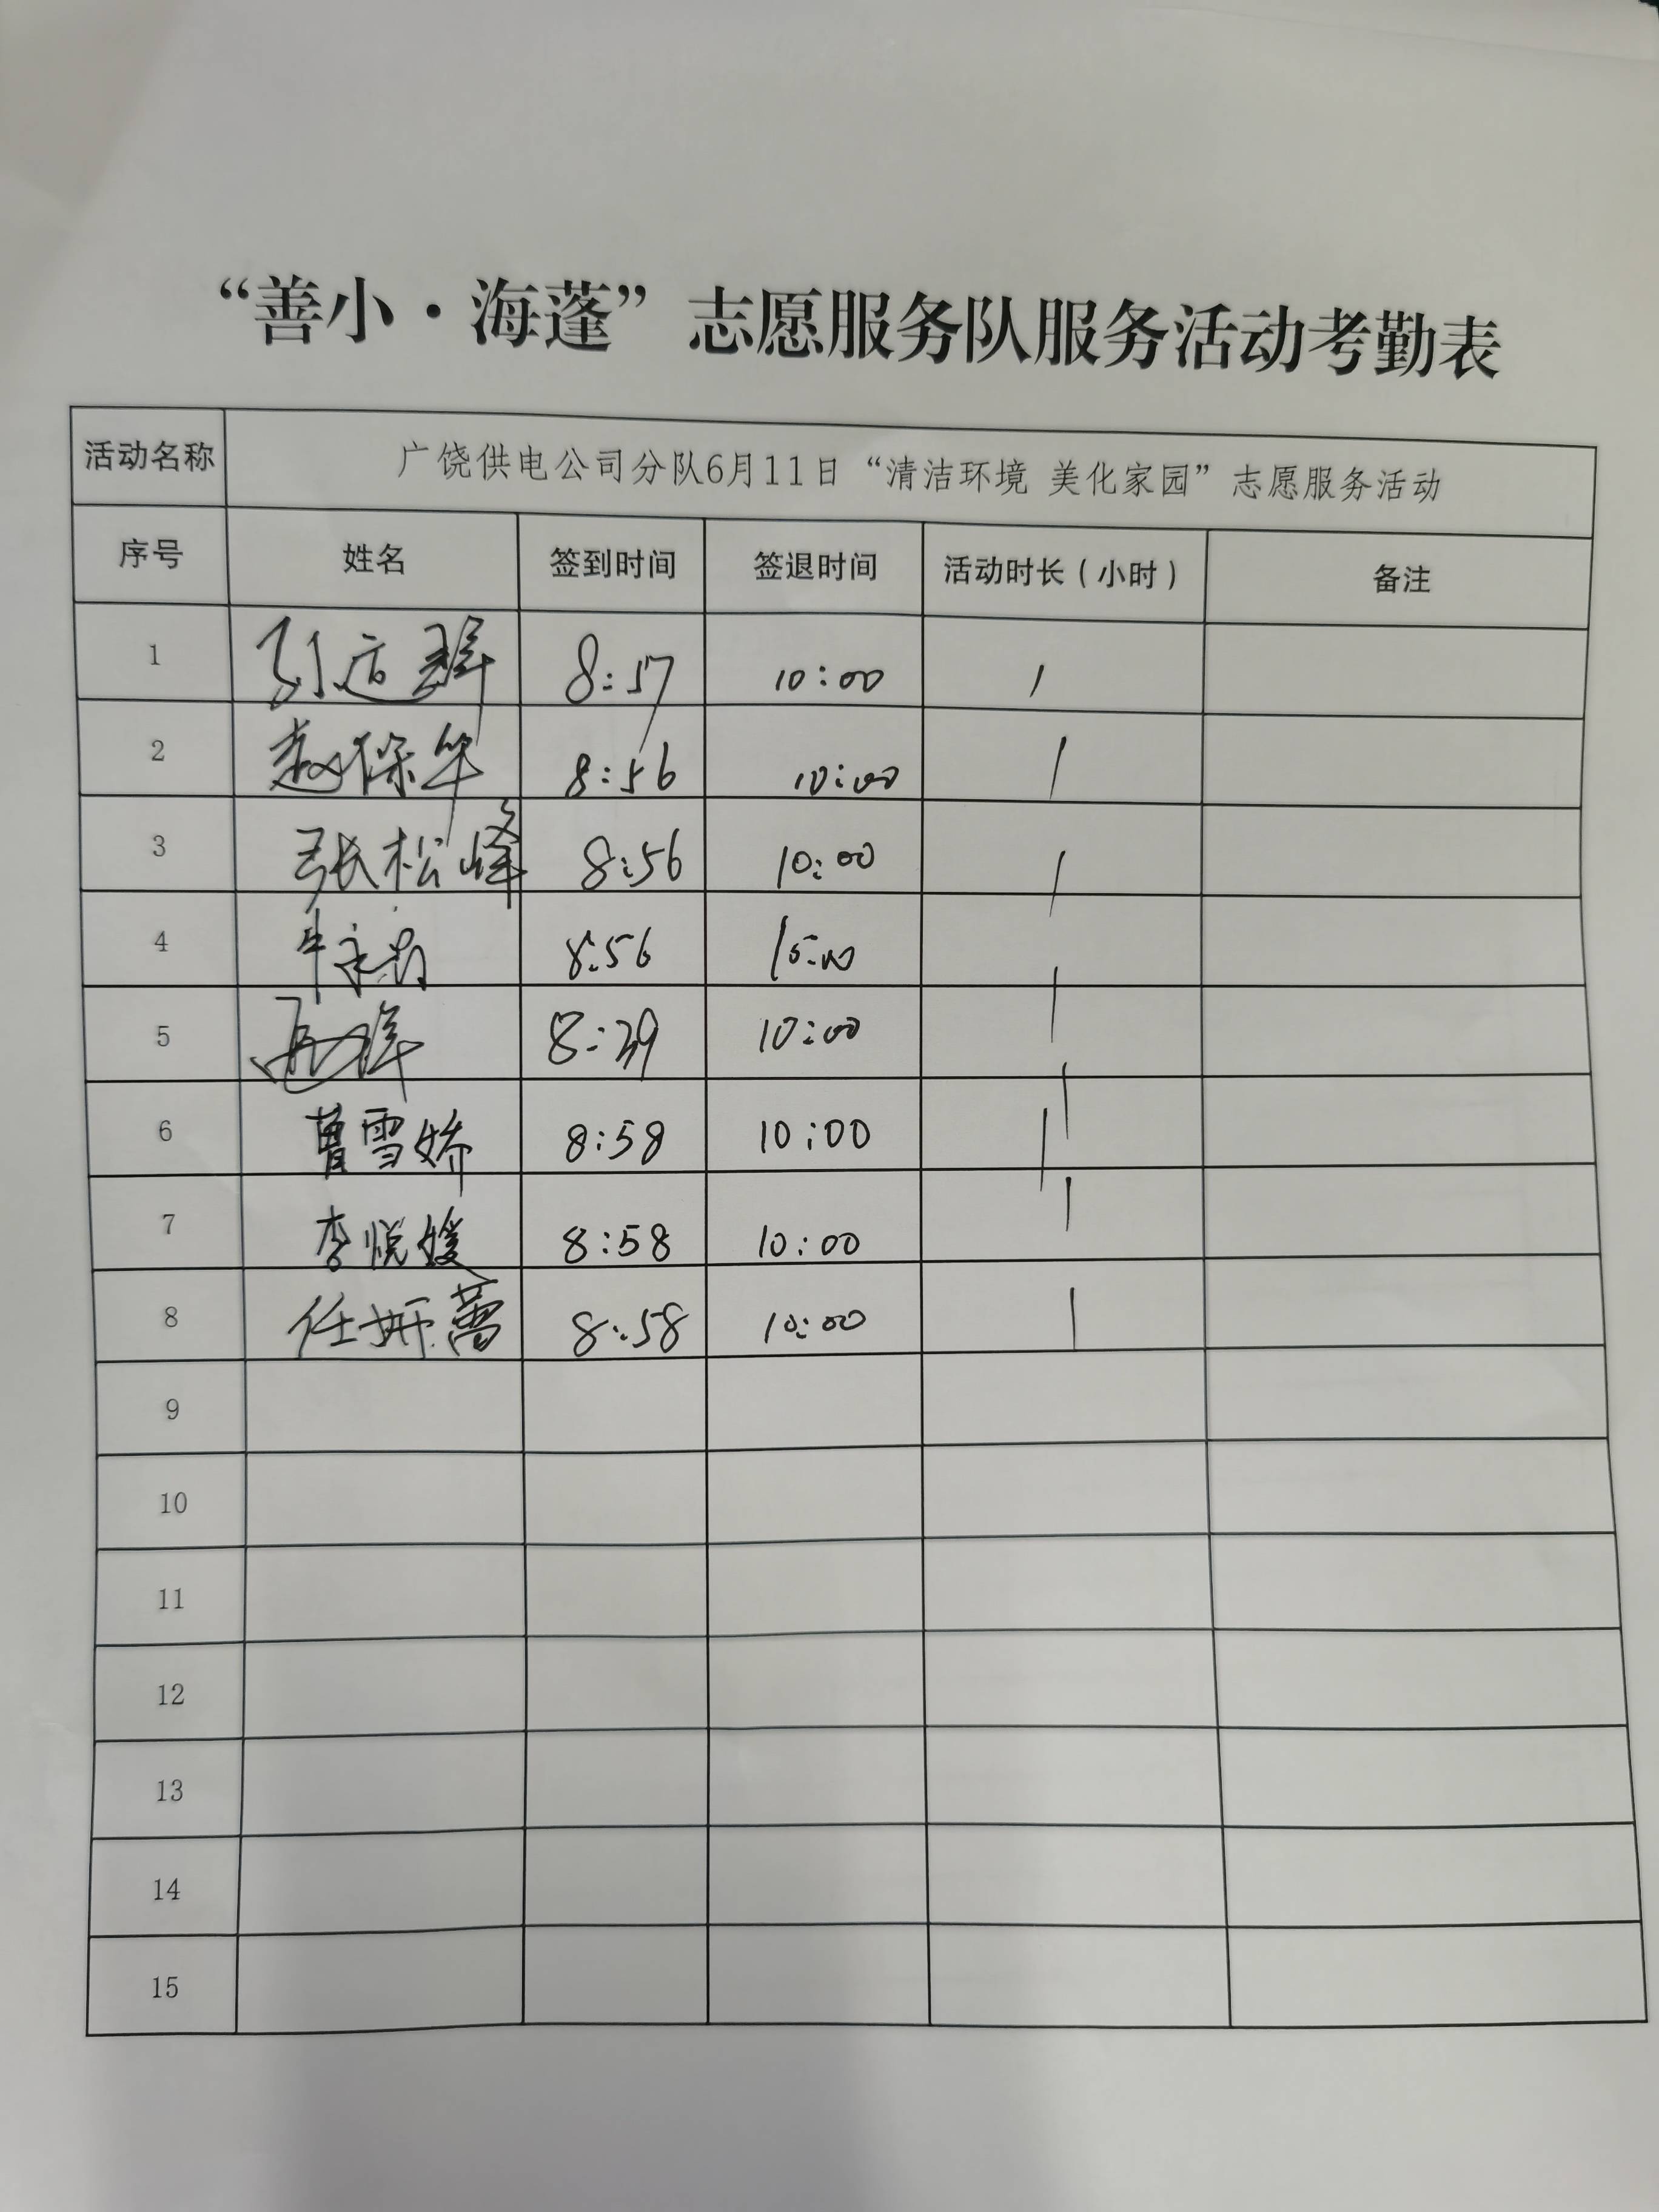 “善小·海蓬”志愿服务队服务活动考勤表
活动名称 广饶供电公司分队6月11日“清洁环境 美化家园”志愿服务活动
序号 姓名 签到时间 签退时间 活动时长（小时） 备注
1 8:57 10:00 1
2 赵保华 8:56 10:00 1
3 张松峰 8:56 10:00 1
4 8:56 1
5 8:39 10:00 1
6 曹雪娇 8:58 10:00 1
7 李悦媛 8:58 10:00 1
8 任妍蕾 8:58 10:00 1
9
10
11
12
13
14
15